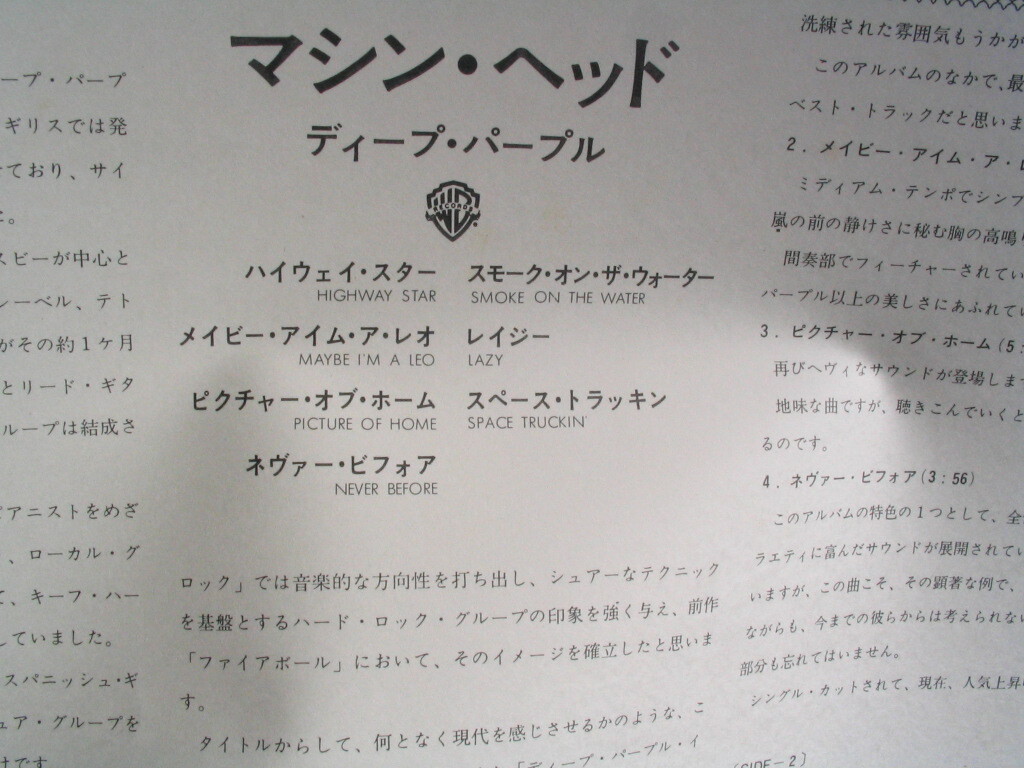 ープ・パープ
ギリスでは発
ており、サイ
スビーが中心と
レーベル、テト
がその約１ケ月
とリード・ギタ
ループは結成さ
ピアニストをめざ
、ローカル・グ
て、キーフ・ハー
していました。
スパニッシュ・ギ
ュア・グループを
けです
マシン・ヘッド
ディープ・パープル
RECORDS
ハイウェイ・スター
HIGHWAY STAR
メイビー・アイム・ア・レオ
MAYBE I'M A LEO
ピクチャー・オブ・ホーム
PICTURE OF HOME
ネヴァー・ビフォア
NEVER BEFORE
スモーク・オン・ザ・ウォーター
SMOKE ON THE WATER
レイジー
LAZY
スペース・トラッキン
SPACE TRUCKIN'
ロック」では音楽的な方向性を打ち出し、シュアーなテクニック
を基盤とするハード・ロック・グループの印象を強く与え、前作
「ファイアボール」において、そのイメージを確立したと思いま
す。
タイトルからして、何となく現代を感じさせるかのような、こ
「ディープ・パープル・イ
洗練された雰囲気もうかが
このアルバムのなかで、最
ベスト・トラックだと思いま
2．メイビー・アイム・ア・レ
ミディアム・テンポでシンプ
嵐の前の静けさに秘む胸の高鳴り
間奏部でフィーチャーされてい
パープル以上の美しさにあふれてい
3．ピクチャー・オブ・ホーム(5:
再びヘヴィなサウンドが登場しま
地味な曲ですが、聴きこんでいくと
るのです。
4．ネヴァー・ビフォア(3:56)
このアルバムの特色の１つとして、全
ラエティに富んだサウンドが展開されてい
いますが、この曲こそ、その顕著な例で、
ながらも、今までの彼らからは考えられない
部分も忘れてはいません。
シングル・カットされて、現在、人気上昇
(SIDE－2)